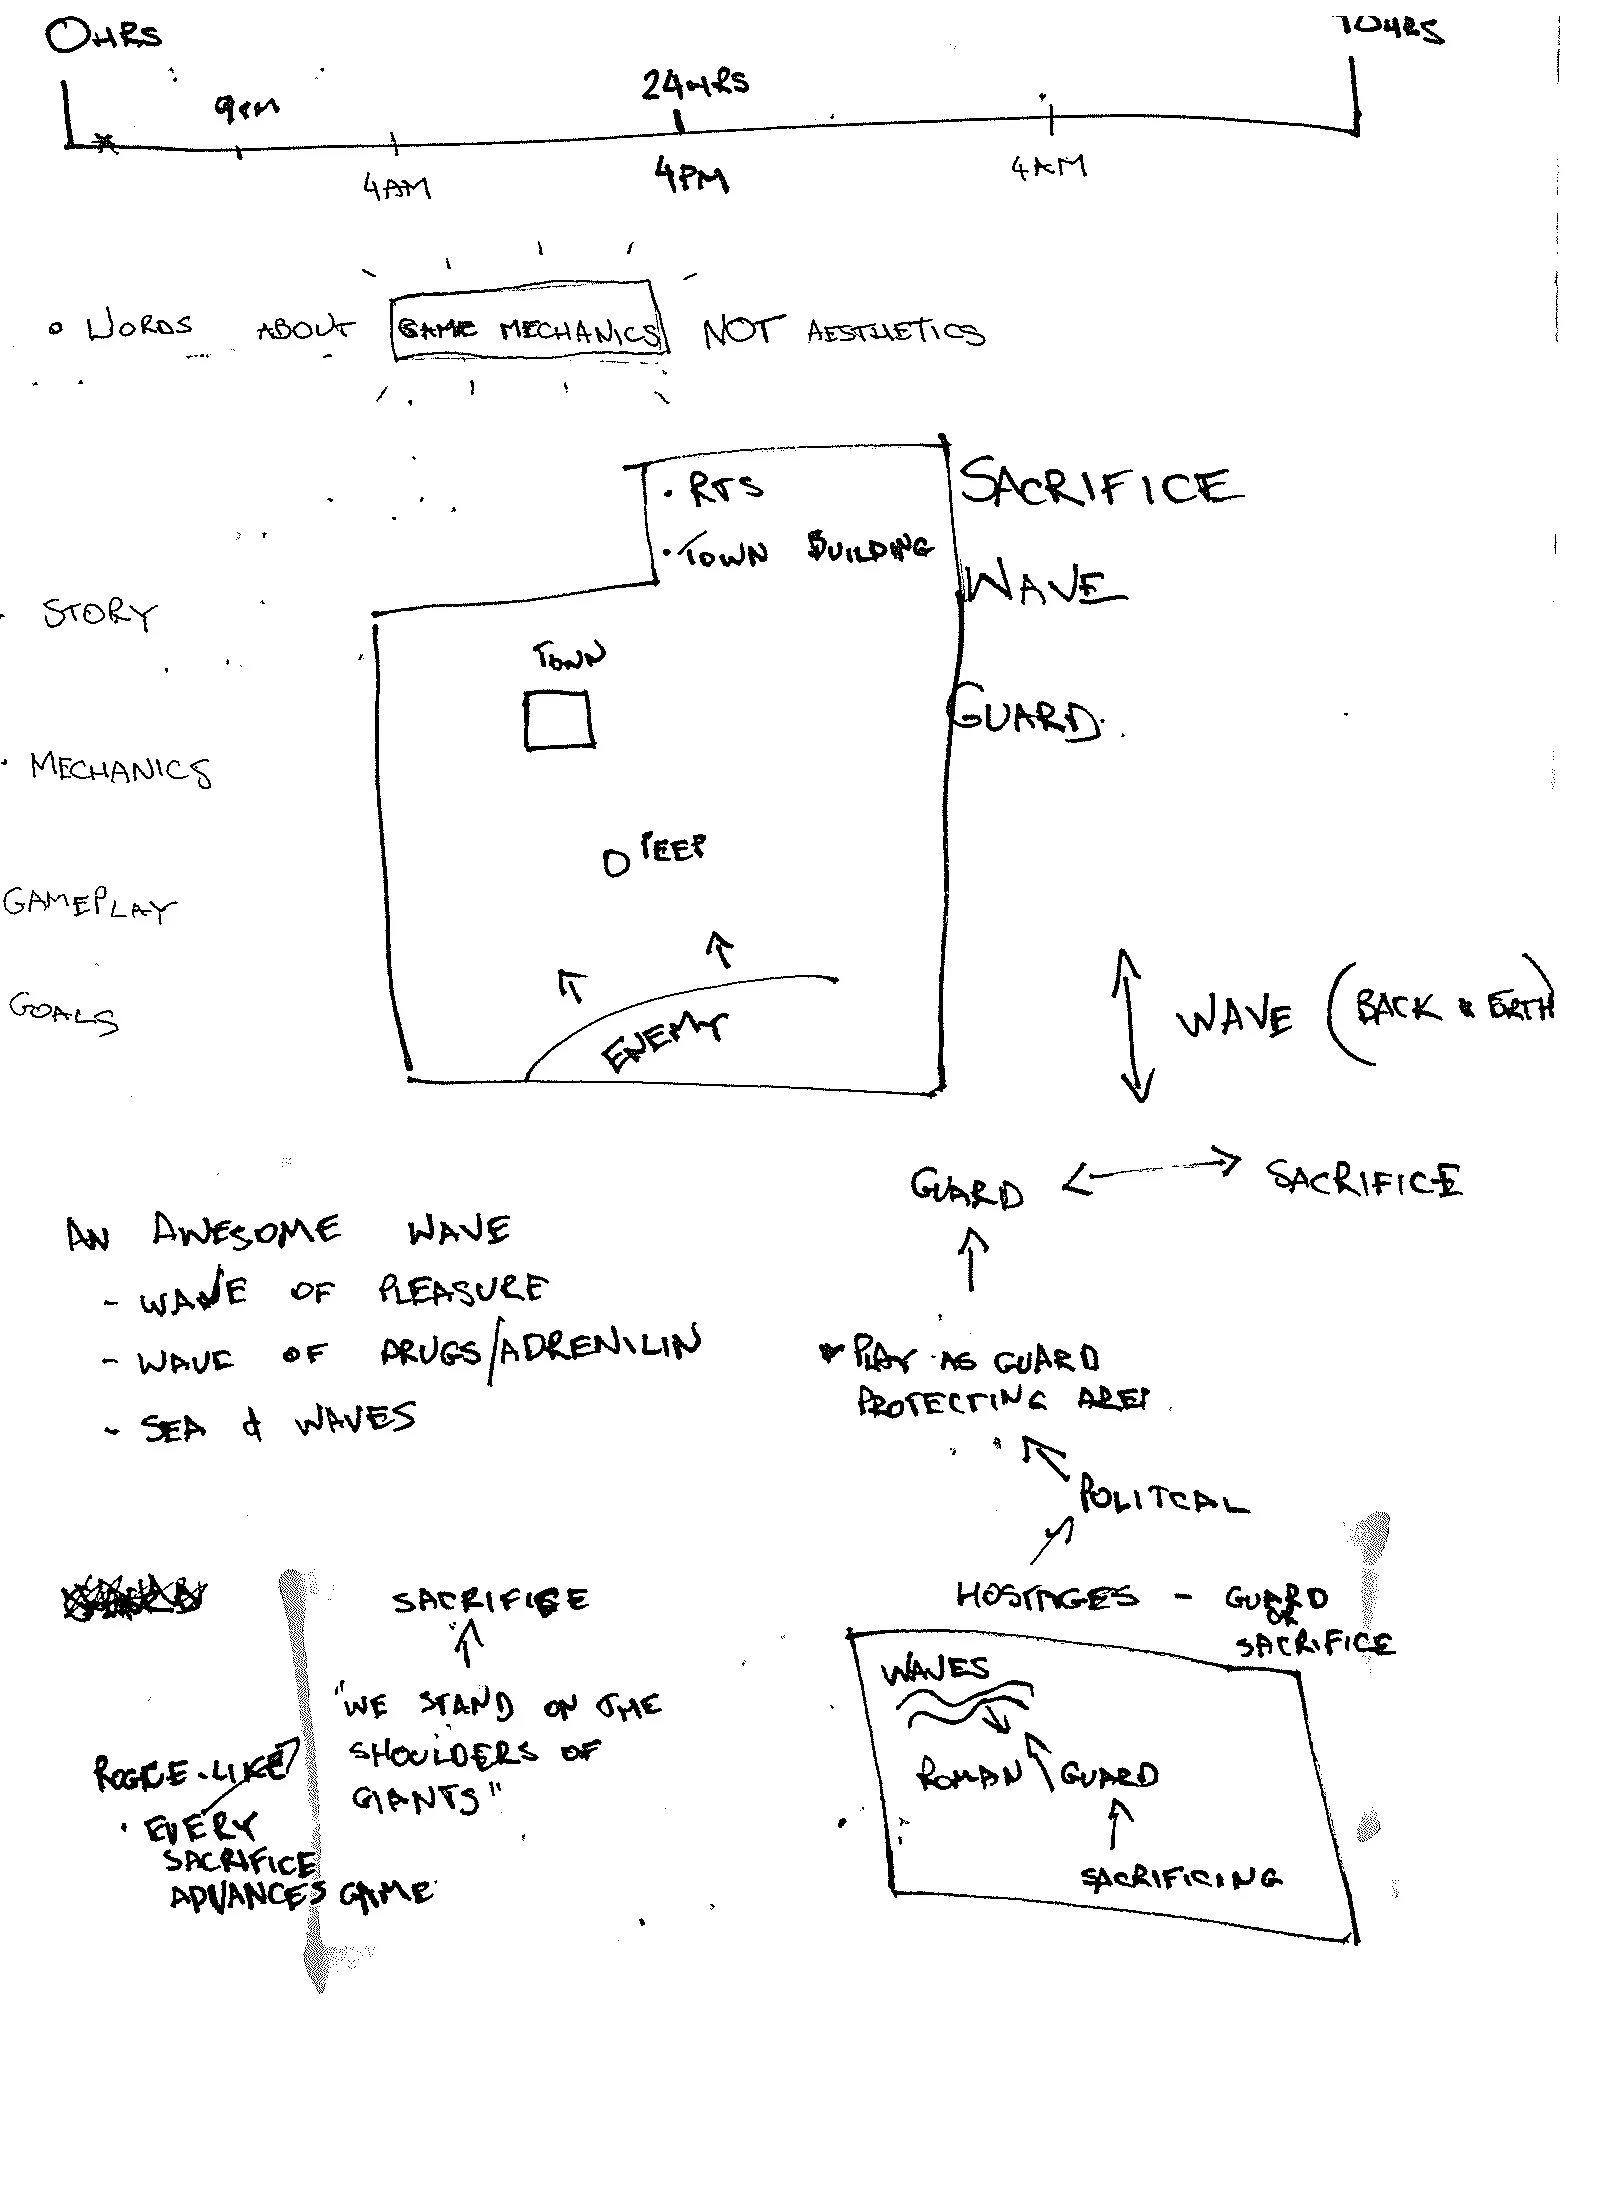 0HRS
24HRS
9PM
4AM
4PM
4AM
WORDS ABOUT GAME MECHANICS NOT AESTHETICS
RTS
TOWN BUILDING
SACRIFICE
WAVE
GUARD
STORY
MECHANICS
GAMEPLAY
GOALS
TOWN
PEEP
ENEMY
WAVE (BACK & FORTH)
GUARD
SACRIFICE
AN AWESOME WAVE
- WAVE OF PLEASURE
- WAVE OF DRUGS/ADRENILIN
- SEA & WAVES
PLAY AS GUARD
PROTECTING AREA
POLITCAL
HOSTAGES - GUARD
OR
SACRIFICE
WAVES
ROMAN GUARD
SACRIFICING
SACRIFICE
"WE STAND ON THE
SHOULDERS OF
GIANTS"
ROGUE-LIKE
EVERY
SACRIFICE
ADVANCES GAME